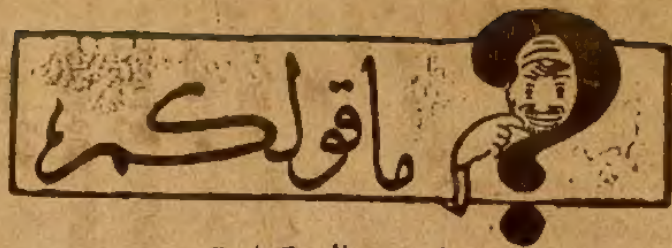 ما قولكم ؟